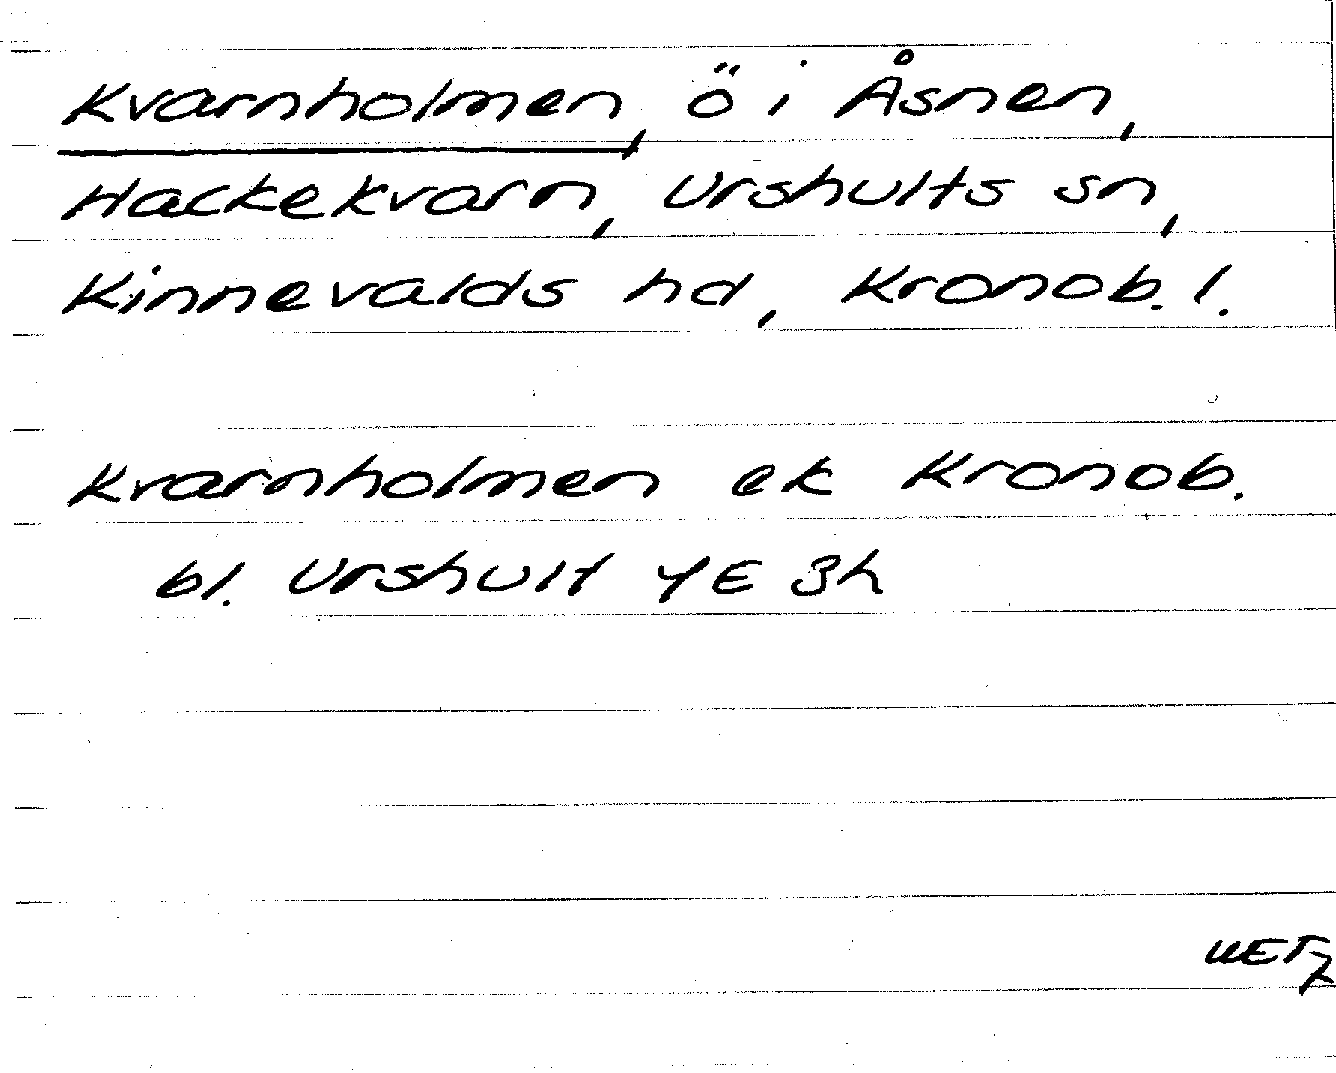 Kvarnholmen, ö i Åsnen,
Hackekvarn, Urshults sn,
Kinnevalds hd, Kronob. l.
Kvarnholmen ek Kronob.
bl. Urshult 4E 3h